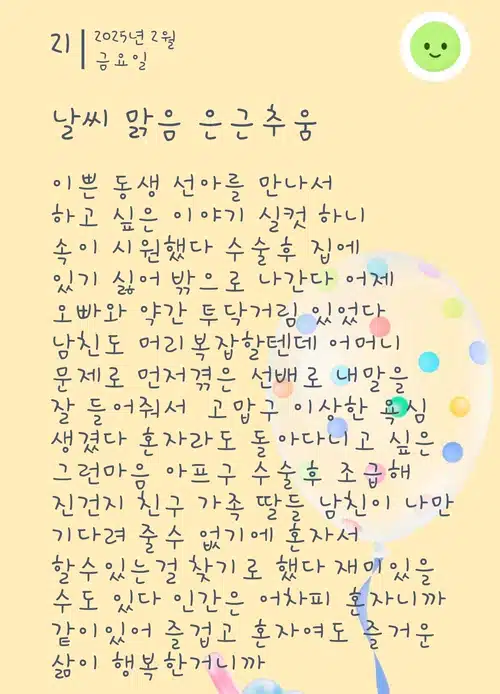 21
2025년 2월
금요일
날씨 맑음 은근추움
이쁜 동생 선아를 만나서
하고 싶은 이야기 실컷 하니
속이 시원했다 수술후 집에
있기 싫어 밖으로 나간다 어제
오빠와 약간 투닥거림 있었다
남친도 머리복잡할텐데 어머니
문제로 먼저겪은 선배로 내말을
잘 들어줘서 고맙구 이상한 욕심
생겼다 혼자라도 돌아다니고 싶은
그런마음 아프구 수술후 조급해
진건지 친구 가족 딸들 남친이 나만
기다려 줄수 없기에 혼자서
할수있는걸 찾기로 했다 재미있을
수도 있다 인간은 어차피 혼자니까
같이있어 즐겁고 혼자여도 즐거운
삶이 행복한거니까